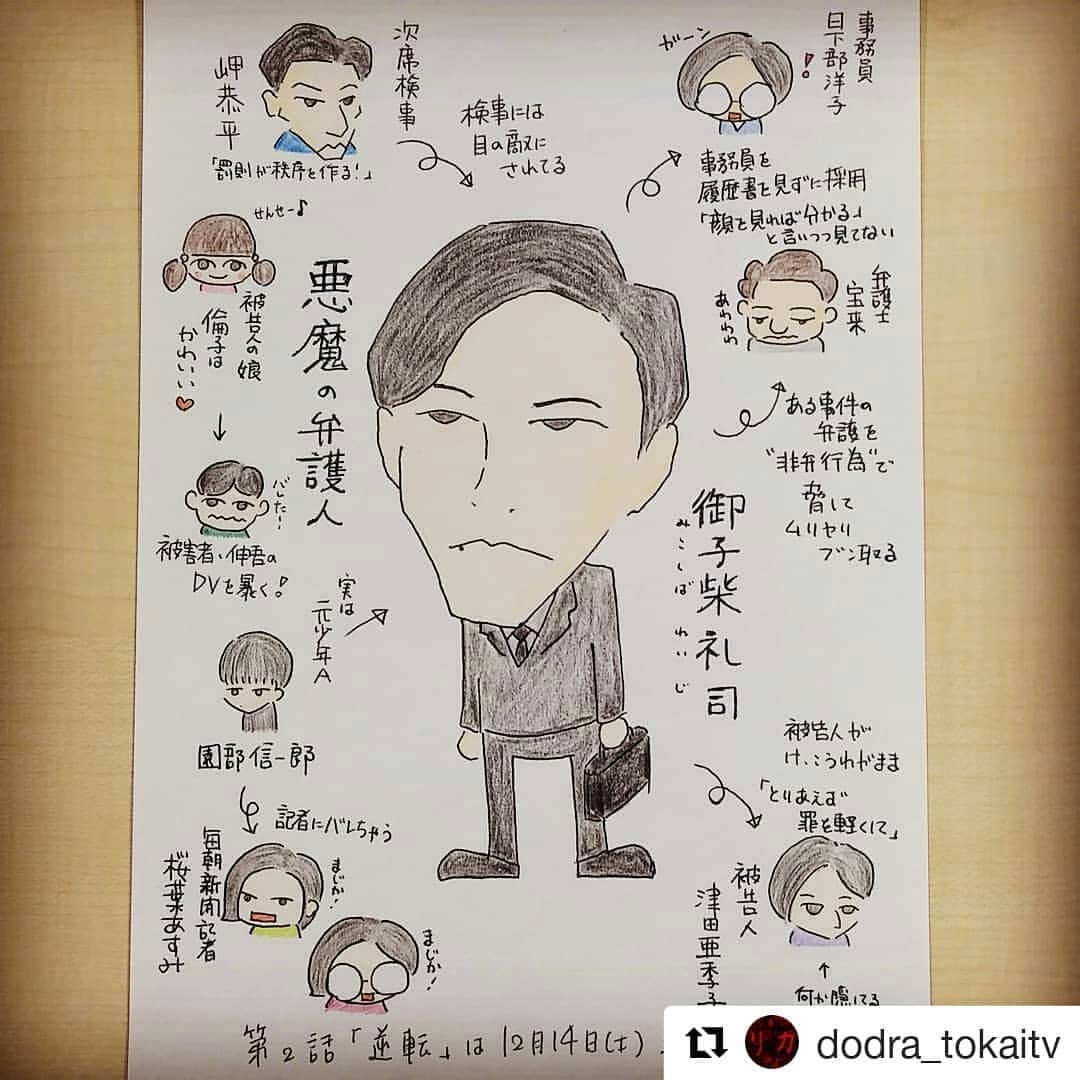 次席検事
岬恭平
「罰則が秩序を作る!」
検事には
目の敵に
されてる
事務員
日下部洋子
ガーン
!
事務員を
履歴書を見ずに採用
「顔を見れば分かる」
と言いつつ見てない
せんせー♪
被告人の娘
倫子は
かわいい♥
悪魔の弁護人
弁護士
宝来
あわわわ
ある事件の
弁護を
"非弁行為"で
脅して
ムリヤリ
ブン取る
バレたー!
被害者・伸吾の
DVを暴く!
御子柴礼司
みこしば れいじ
実は
元少年A
園部信一郎
記者にバレちゃう
毎朝新聞記者
桜葉あすみ
まじか!
まじか!
被告人が
けっこうわがまま
「とりあえず
罪を軽くして」
被告人
津田亜季子
↑
何か隠してる
第2話「逆転」は12月14日(土)
リカ
dodra_tokaitv